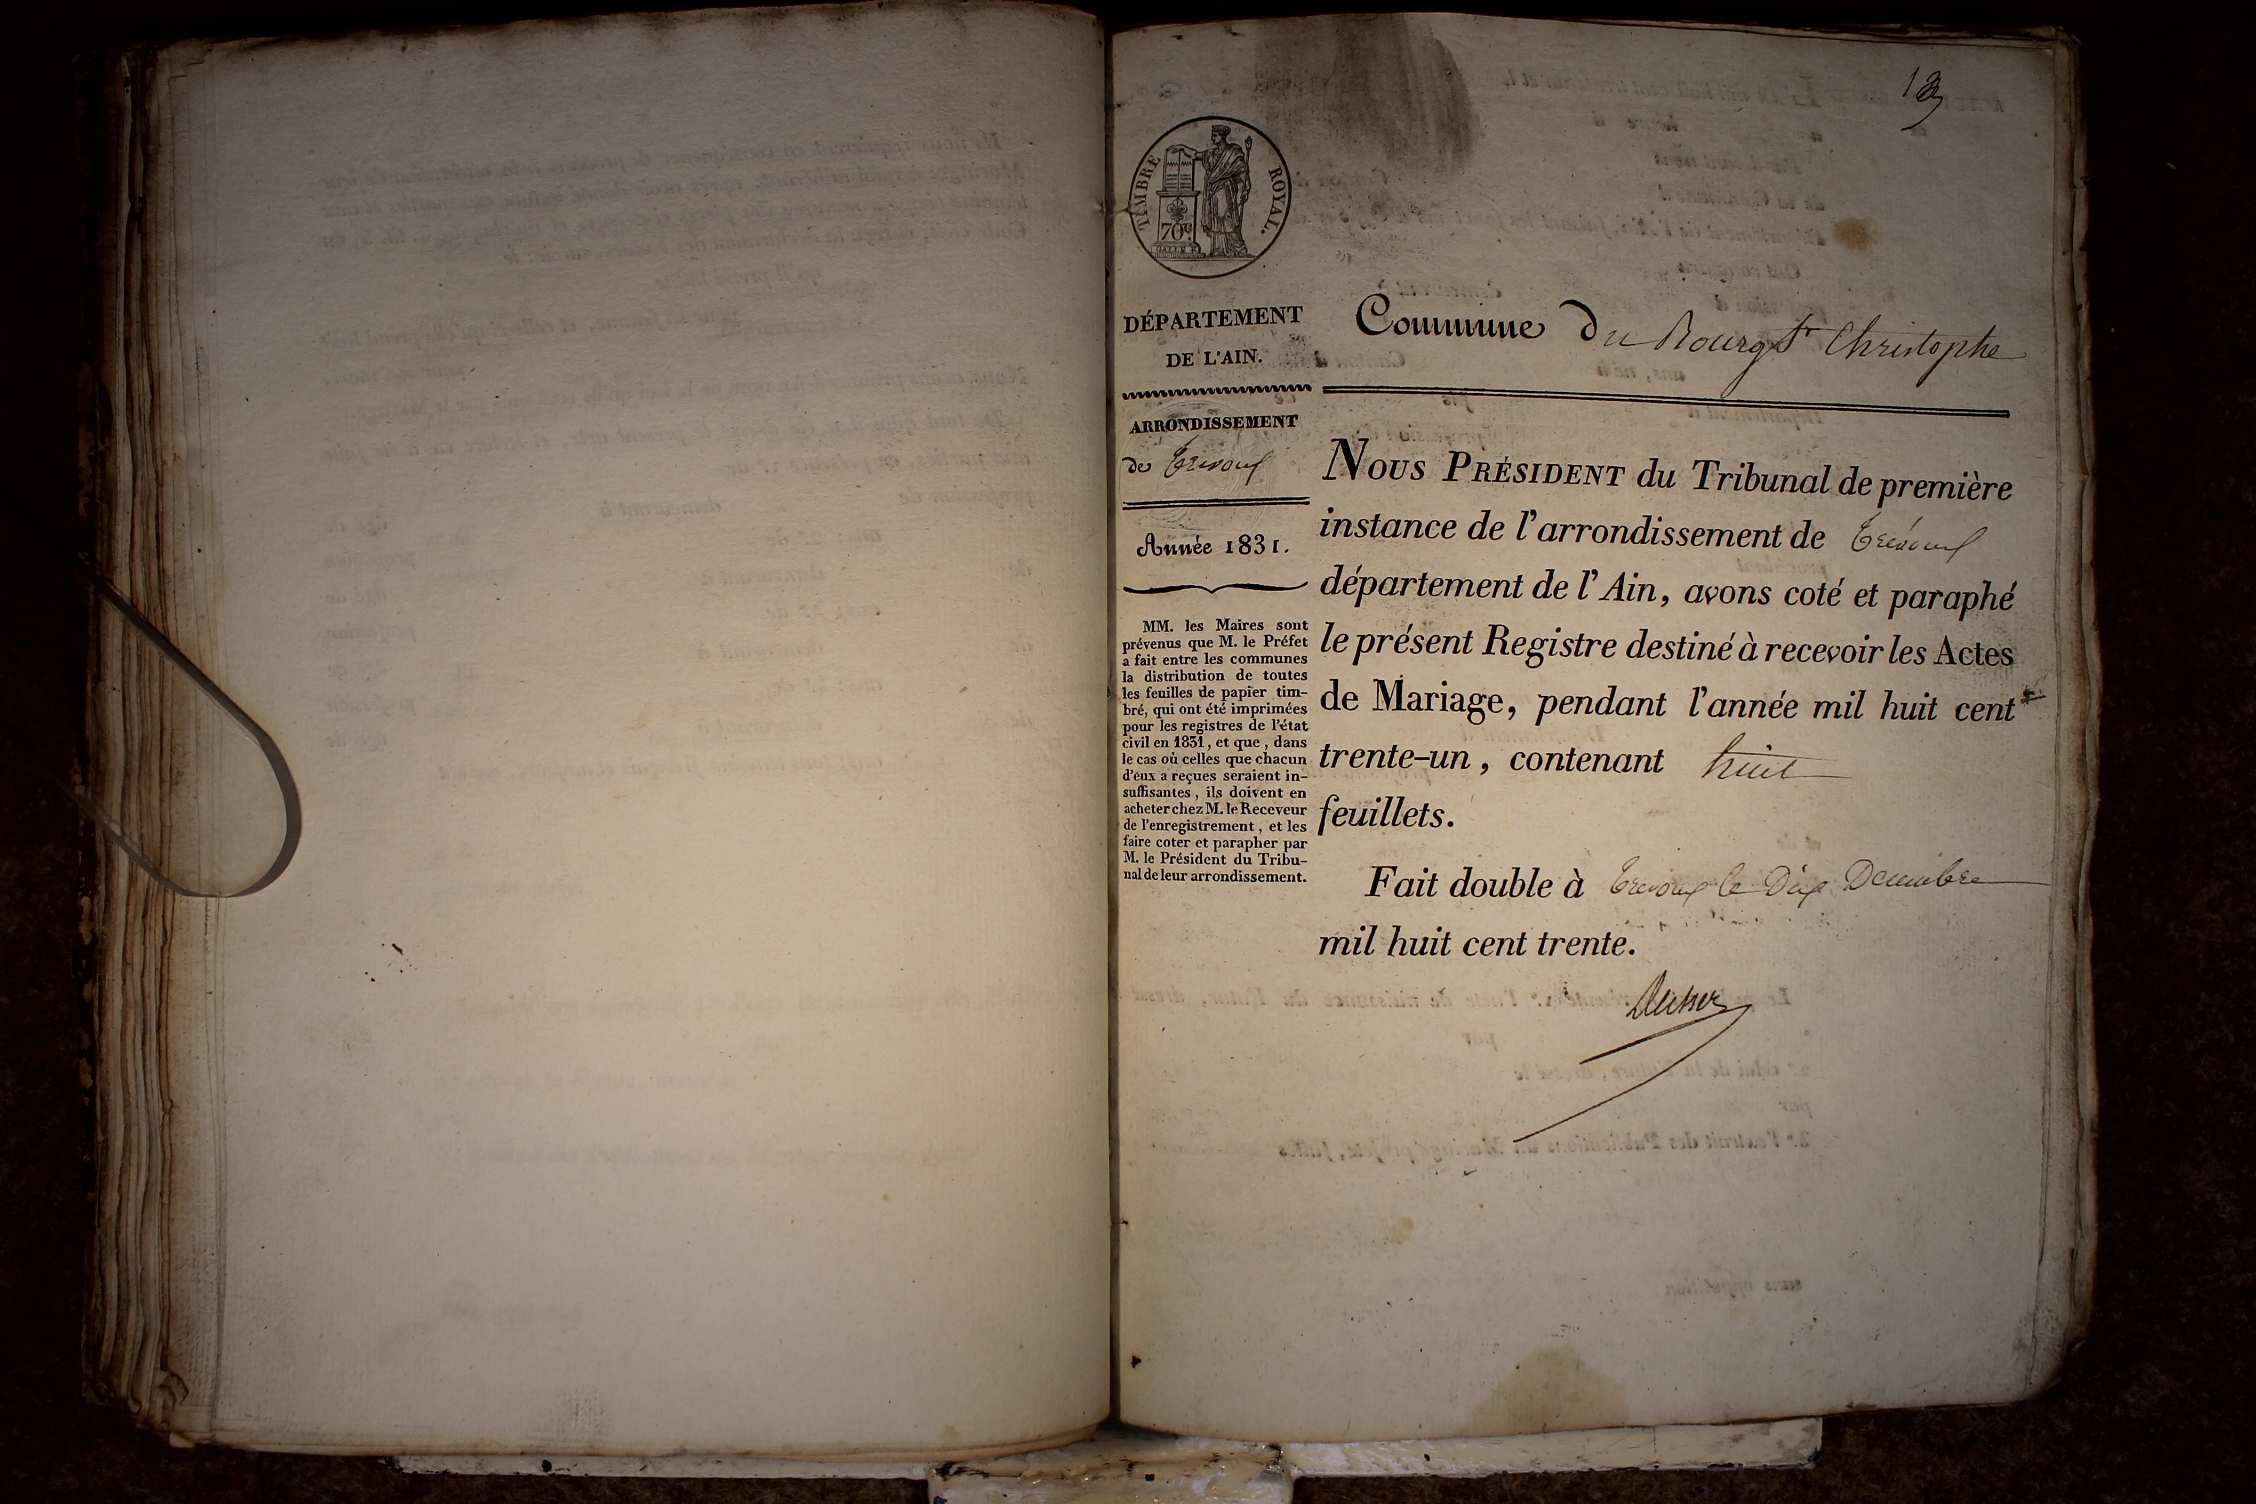 TIMBRE ROYAL.
70c
GALLE F.
DÉPARTEMENT
DE L'AIN.
ARRONDISSEMENT
de Trevoux
Année 1831.
MM. les Maires sont
prévenus que M. le Préfet
a fait entre les communes
la distribution de toutes
les feuilles de papier tim-
bré, qui ont été imprimées
pour les registres de l'état
civil en 1831, et que, dans
le cas où celles que chacun
d'eux a reçues seraient in-
suffisantes, ils doivent en
acheter chez M. le Receveur
de l'enregistrement, et les
faire coter et parapher par
M. le Président du Tribu-
nal de leur arrondissement.
Commune du Bourg St Christophe
NOUS PRÉSIDENT du Tribunal de première
instance de l'arrondissement de Trévoux
département de l'Ain, avons coté et paraphé
le présent Registre destiné à recevoir les Actes
de Mariage, pendant l'année mil huit cent
trente-un, contenant huit
feuillets.
Fait double à Trevoux le Dix Decembre
mil huit cent trente.